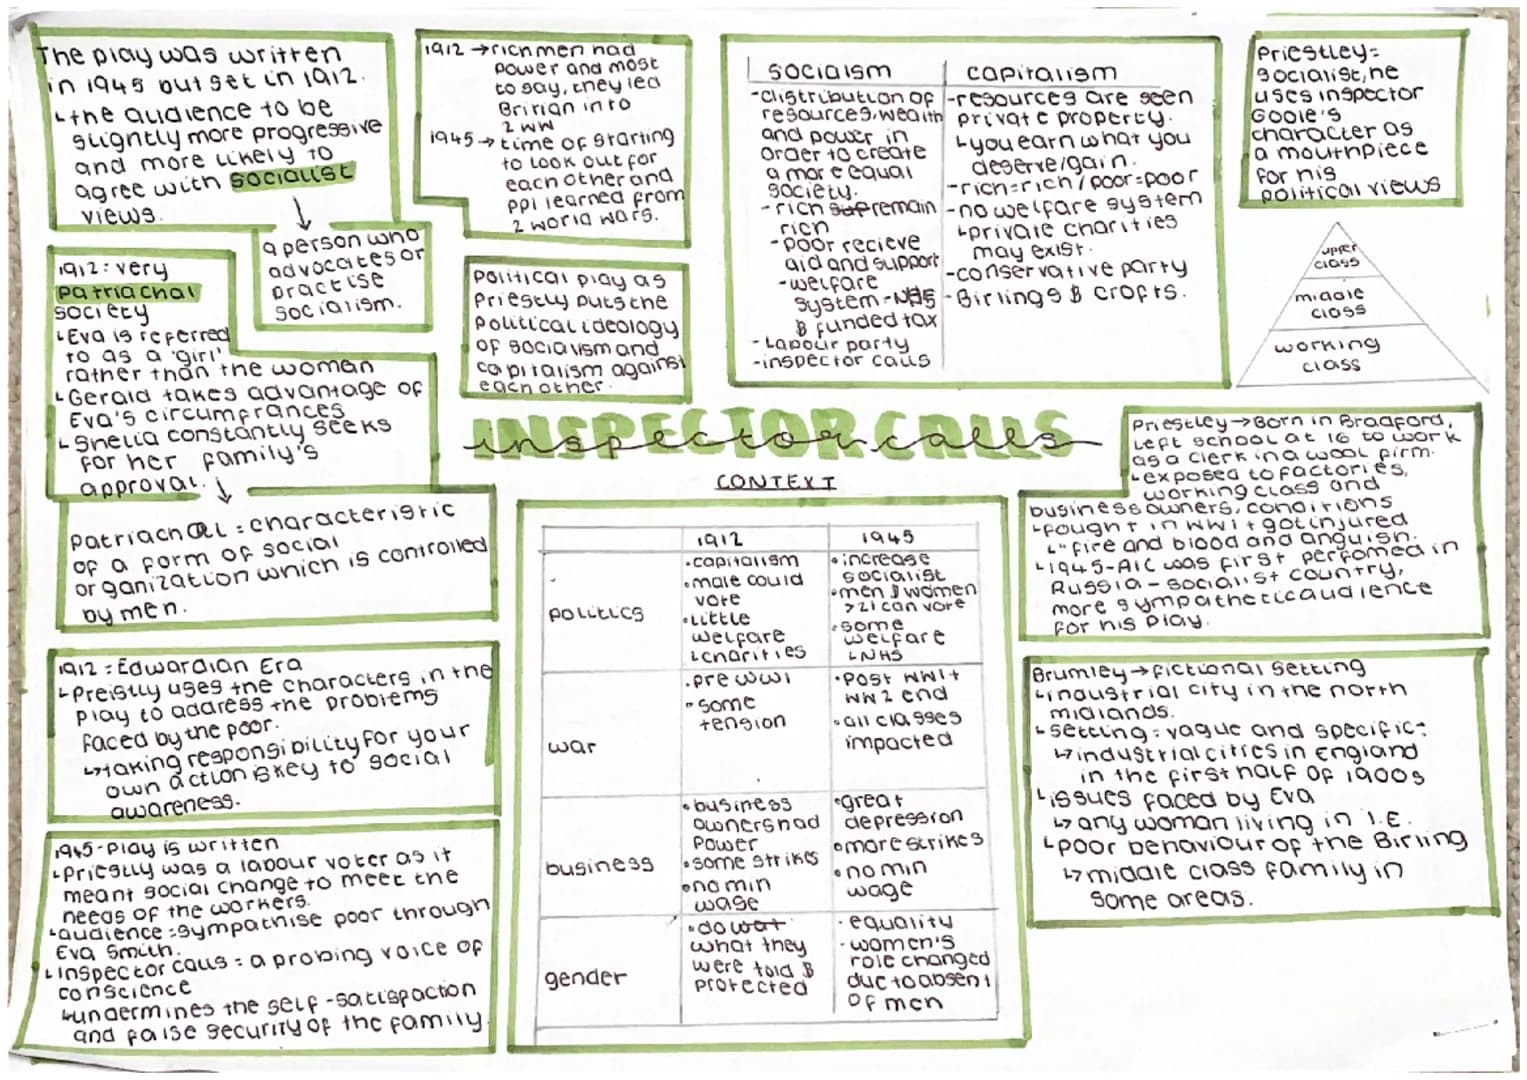 The play was written
in 1945 but set in 1912.
↳the audience to be
slightly more progressive
and more likely to
agree with socialist
views.
a person who
advocates or
practise
socialism.
1912 → rich men had
power and most
to say, they led
Britian into
2 WW
1945 → time of starting
to look out for
each other and
ppl learned from
2 world wars.
Political play as
Priestly puts the
political ideology
of socialism and
capitalism against
each other.
sociaism
-distribution of
resources, wealth
and power in
order to create
a more equal
society.
-rich sup remain
rich
-poor recieve
aid and support
-welfare
system-NHS
& funded tax
-Labour party
-inspector calls
capitalism
-resources are seen
private property.
↳you earn what you
deserve/gain.
-rich=rich/poor=poor
-no welfare system
↳private charities
may exist.
-conservative party
-Birlings & crofts.
Priestley=
socialist, he
uses inspector
Goole's
character as
a mouthpiece
for his
political views
upper
class
middle
class
working
class
1912: very
patriachal
society
↳Eva is referred
to as a 'girl'
rather than the woman
↳Gerald takes advantage of
Eva's circumfrances
↳Shelia constantly seeks
for her family's
approval.
patriachal = characteristic
of a form of social
organization which is controlled
by men.
1912 = Edwardian Era
↳Preistly uses the characters in the
play to address the problems
faced by the poor.
↳taking responsibility for your
own action is key to social
awareness.
1945-play is written
↳Priestly was a labour voter as it
meant social change to meet the
needs of the workers.
↳audience = sympathise poor through
Eva Smith.
↳Inspector calls = a probing voice of
conscience
↳undermines the self-satisfaction
and false security of the family.
INSPECTOR CALLS
inspector calls
CONTEXT
1912 1945
politics
•capitalism
•male could
vote
•little
welfare
↳charities
•increase
socialist
•men & women
>21 can vote
•some
welfare
↳NHS
war
•pre WW1
•some
tension
•Post WW1+
WW2 end
•all classes
impacted
business
•business
owners had
power
•some strikes
•no min
wage
•great
depression
•more strikes
•no min
wage
gender
•do wat
what they
were told &
protected
•equality
•women's
role changed
due to absent
of men
Priestley → Born in Bradford,
left school at 16 to work
as a clerk in a wool firm.
↳exposed to factories,
working class and
business owners, conditions
↳fought in WW1 + got injured
↳"fire and blood and anguish.
↳1945-AIC was first perfomed in
Russia - socialist country,
more sympathetic audience
for his play.
Brumley → fictional setting
↳industrial city in the north
midlands.
↳setting: vague and specific:
↳industrial cities in England
in the first half of 1900s
↳issues faced by Eva
↳any woman living in I.E.
↳poor behaviour of the Birling
↳middle class family in
some areas.